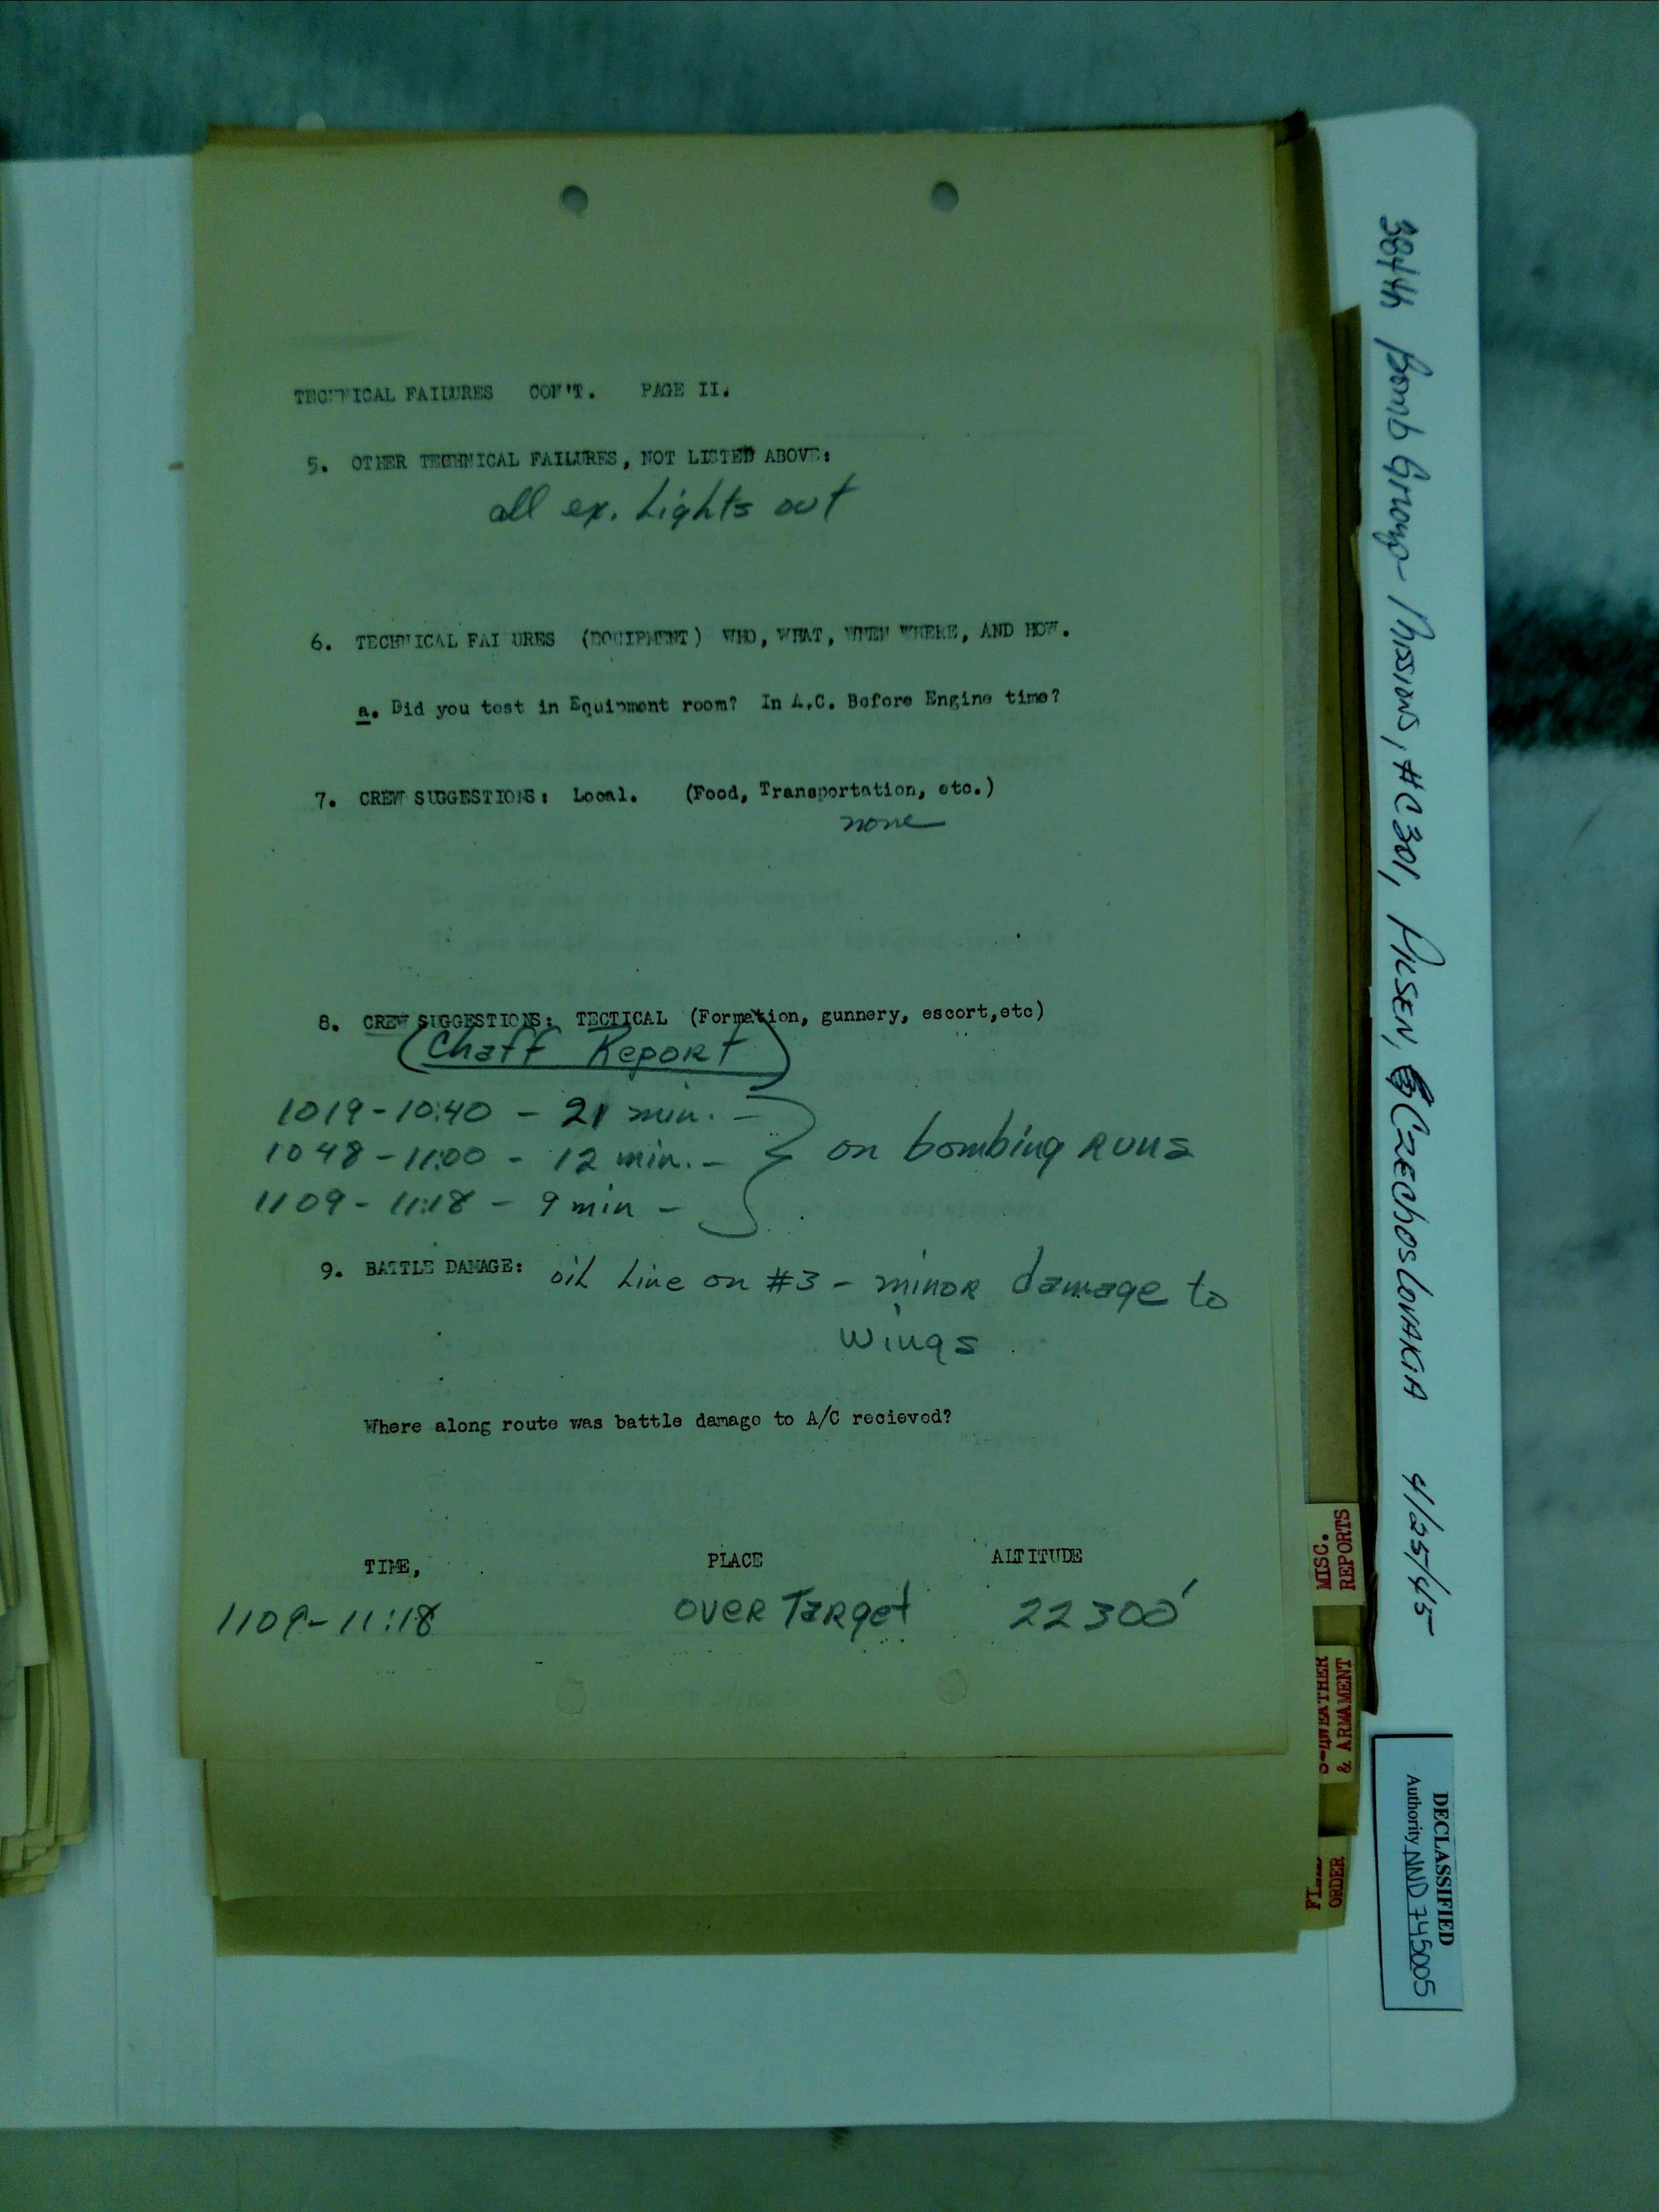 TECHNICAL FAILURES CON'T. PAGE II.
5. OTHER TECHNICAL FAILURES, NOT LISTED ABOVE:
all ex. Lights out
6. TECHNICAL FAI URES (EQUIPMENT) WHO, WHAT, WHEN WHERE, AND HOW.
a. Did you test in Equipment room? In A.C. Before Engine time?
7. CREW SUGGESTIONS: Local. (Food, Transportation, etc.)
none
8. CREW SUGGESTIONS: TECTICAL (Formation, gunnery, escort,etc)
(Chaff Report)
1019-10:40 - 21 min. -
1048-11:00 - 12 min. - on bombing runs
1109-11:18 - 9 min -
9. BATTLE DAMAGE: oil line on #3 - minor damage to
wings
Where along route was battle damage to A/C recieved?
TIME, PLACE ALTITUDE
1109-11:18 over Target 22300'
384th Bomb Group- Missions, #C301, PILSEN, CZECHOSLOVAKIA 4/25/45
MISC.
REPORTS
WEATHER
& ARMAMENT
ORDER
DECLASSIFIED
Authority NND 745005